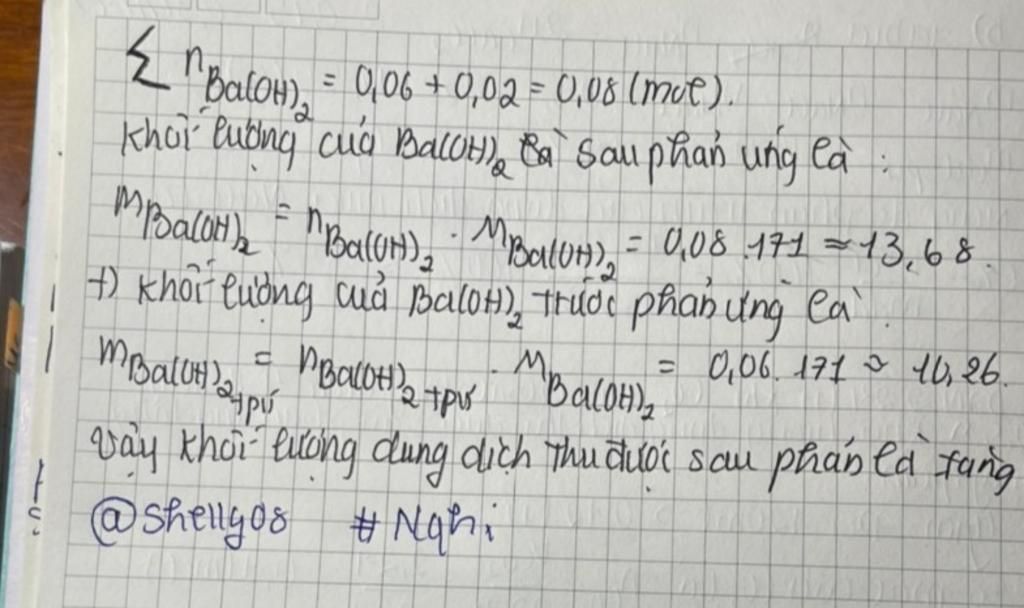 Σ n Ba(OH)₂ = 0,06 + 0,02 = 0,08 (mol).
Khối lượng của Ba(OH)₂ sau phản ứng là :
m Ba(OH)₂ = n Ba(OH)₂ . M Ba(OH)₂ = 0,08 . 171 = 13,68.
+) Khối lượng của Ba(OH)₂ trước phản ứng là .
m Ba(OH)₂ tpứ = n Ba(OH)₂ tpư . M Ba(OH)₂ = 0,06 . 171 = 10,26.
Vậy khối lượng dung dịch thu được sau phản là tăng
@shelly08 # Nghi